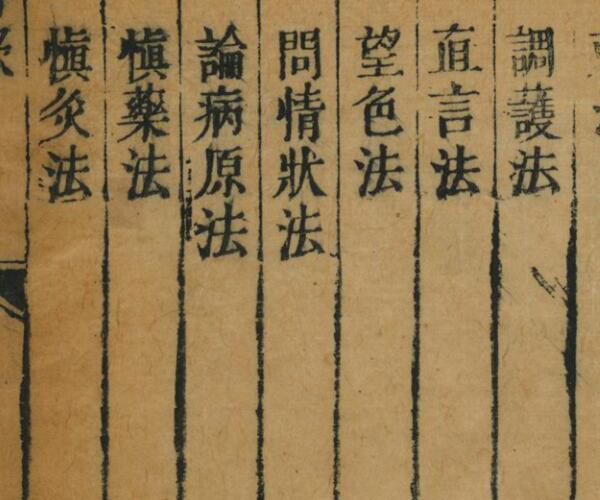 調護法
直言法
望色法
問情狀法
論病原法
慎藥法
慎灸法